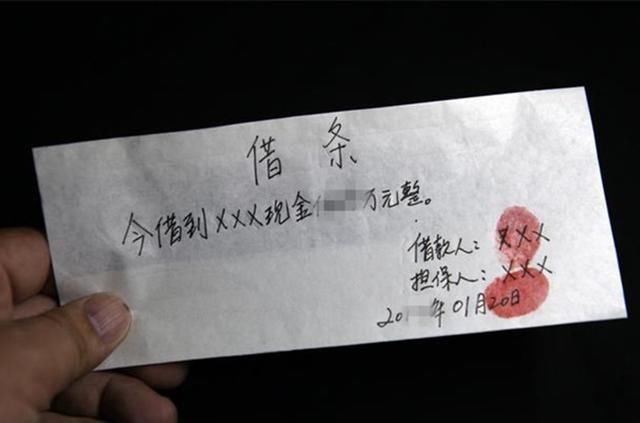 借条
今借到XXX现金万元整。
借款人：XXX
担保人：XXX
20年01月20日